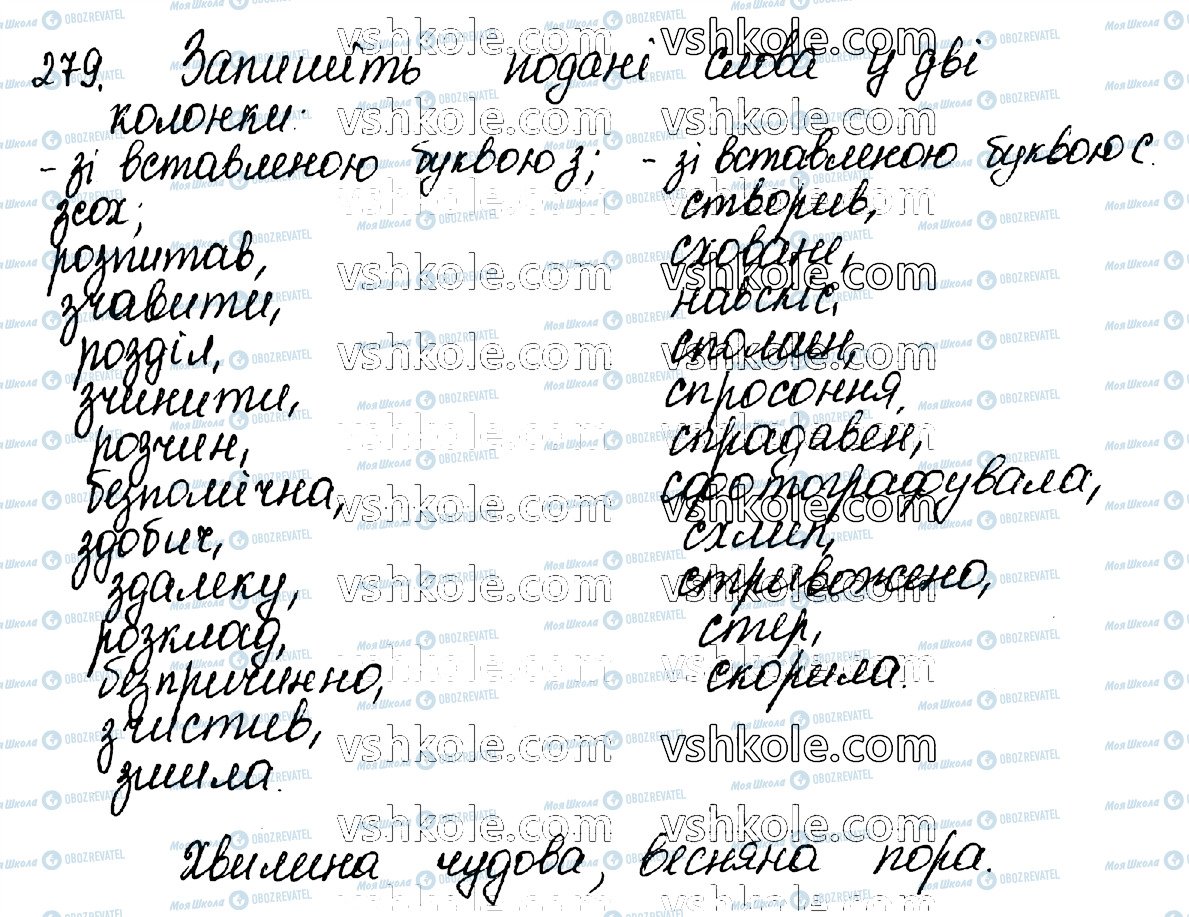 279. Запишіть подані слова у дві
колонки:
- зі вставленою буквою з;
зсох;
розпитав,
зчавити,
розділ,
зчинити,
розчин,
безпомічна,
здобич,
здалеку,
розклад,
безпричинно,
зчистив,
зшила.
- зі вставленою буквою с.
створив,
сховане,
навскіс,
сполин,
спросоння,
спрадавен,
сфотографувала,
схлип,
стривожено,
стер,
скорила.
Хвилина чудова, весняна пора.
vshkole.com
Моя Школа OBOZREVATEL